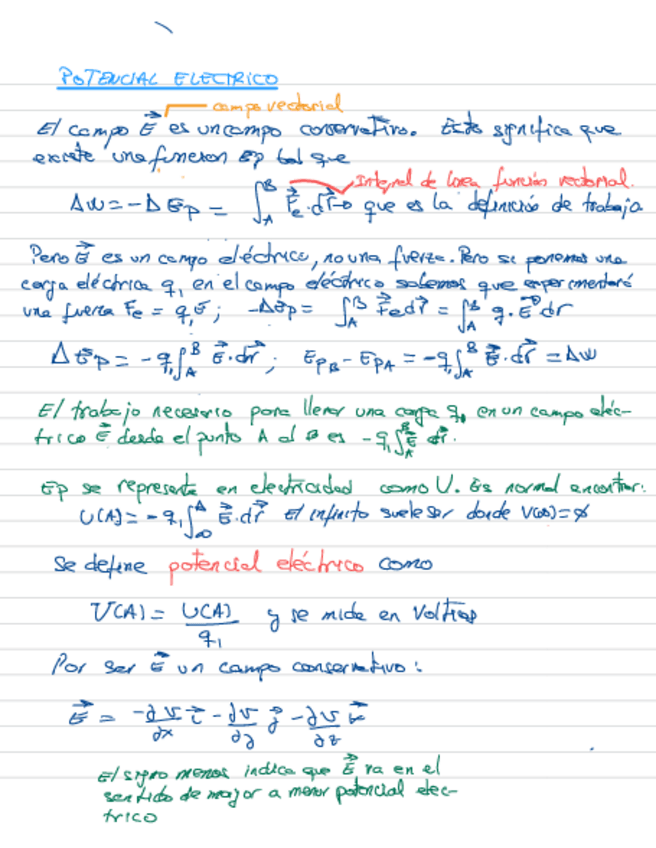 POTENCIAL ELECTRICO
campo vectorial
El campo E⃗ es un campo conservativo. Esto significa que
existe una funcion Ep tal que
Integral de linea función vectorial.
ΔW = -ΔEp = ∫_A^B F⃗e·dr⃗ → que es la definición de trabajo
Pero E⃗ es un campo eléctrico, no una fuerza. Pero si ponemos una
carga eléctrica q₁ en el campo eléctrico sabemos que experimentará
una fuerza Fe = q₁E⃗; -ΔEp = ∫_A^B F⃗e dr⃗ = ∫_A^B q·E⃗ dr
ΔEp = -q₁∫_A^B E⃗·dr⃗; EpB - EpA = -q₁∫_A^B E⃗·dr⃗ = ΔW
El trabajo necesario para llevar una carga q₁ en un campo eléc-
trico E⃗ desde el punto A al B es -q₁∫_A^B E⃗ dr⃗.
Ep se representa en electricidad como U. Es normal encontrar:
U(A) = -q₁∫_∞^A E⃗·dr⃗ El infinito suele ser donde V(∞)=0
Se define potencial eléctrico como
V(A) = U(A)/q₁ y se mide en Voltios
Por ser E⃗ un campo conservativo:
E⃗ = -∂V/∂x i⃗ - ∂V/∂y j⃗ - ∂V/∂z k⃗
El signo menos indica que E⃗ va en el
sentido de mayor a menor potencial eléc-
trico